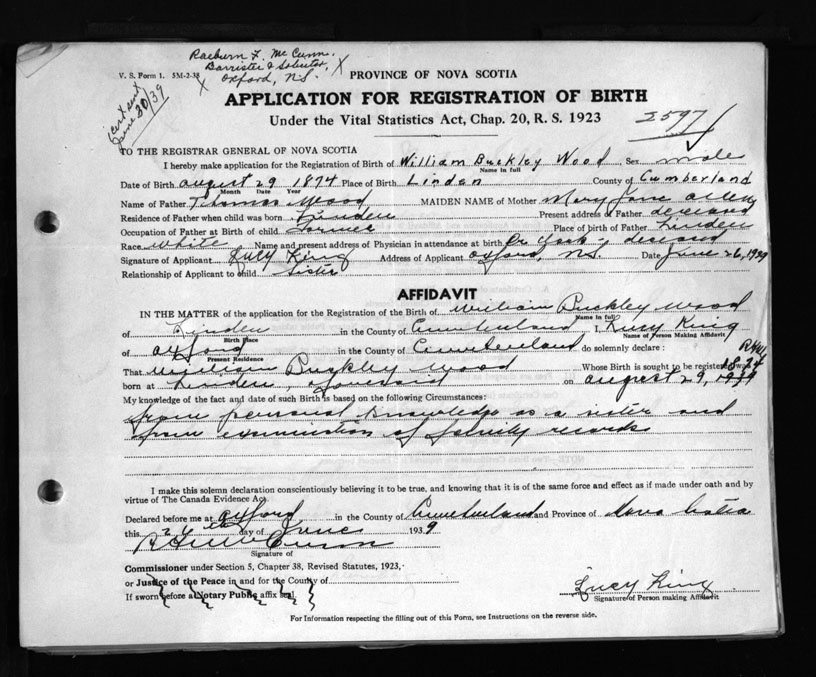 Raeburn F. McCunn,
Barrister & Solicitor, X
V. S. Form 1. 5M-2-38 X Oxford, N.S. PROVINCE OF NOVA SCOTIA
cert sent June 30/39
APPLICATION FOR REGISTRATION OF BIRTH
Under the Vital Statistics Act, Chap. 20, R. S. 1923
2597
TO THE REGISTRAR GENERAL OF NOVA SCOTIA
I hereby make application for the Registration of Birth of William Buckley Wood, Sex male
Name in full
Date of Birth August 29 1874 Place of Birth Linden County of Cumberland
Month Date Year
Name of Father Thomas Wood MAIDEN NAME of Mother Mary Jane
Residence of Father when child was born Linden Present address of Father deceased
Occupation of Father at Birth of child Farmer Place of birth of Father Linden
Race White Name and present address of Physician in attendance at birth Dr. York - deceased
Signature of Applicant Lucy King Address of Applicant Oxford, N.S. Date June 26, 1939
Relationship of Applicant to child Sister
AFFIDAVIT
IN THE MATTER of the application for the Registration of the Birth of William Buckley Wood
Name in full
of Linden in the County of Cumberland I, Lucy King
Birth Place Name of Person Making Affidavit
of Oxford in the County of Cumberland do solemnly declare:
Present Residence
That William Buckley Wood Whose Birth is sought to be registered was
born at Linden, aforesaid on August 29, 1874
My knowledge of the fact and date of such Birth is based on the following Circumstances:
from personal knowledge as a sister and
from examination of family records
I make this solemn declaration conscientiously believing it to be true, and knowing that it is of the same force and effect as if made under oath and by
virtue of The Canada Evidence Act.
Declared before me at Oxford in the County of Cumberland and Province of Nova Scotia
this day of June 1939
R F McCunn
Signature of
Commissioner under Section 5, Chapter 38, Revised Statutes, 1923,
or Justice of the Peace in and for the County of
If sworn before a Notary Public affix seal
Lucy King
Signature of Person making Affidavit
For Information respecting the filling out of this Form, see Instructions on the reverse side.